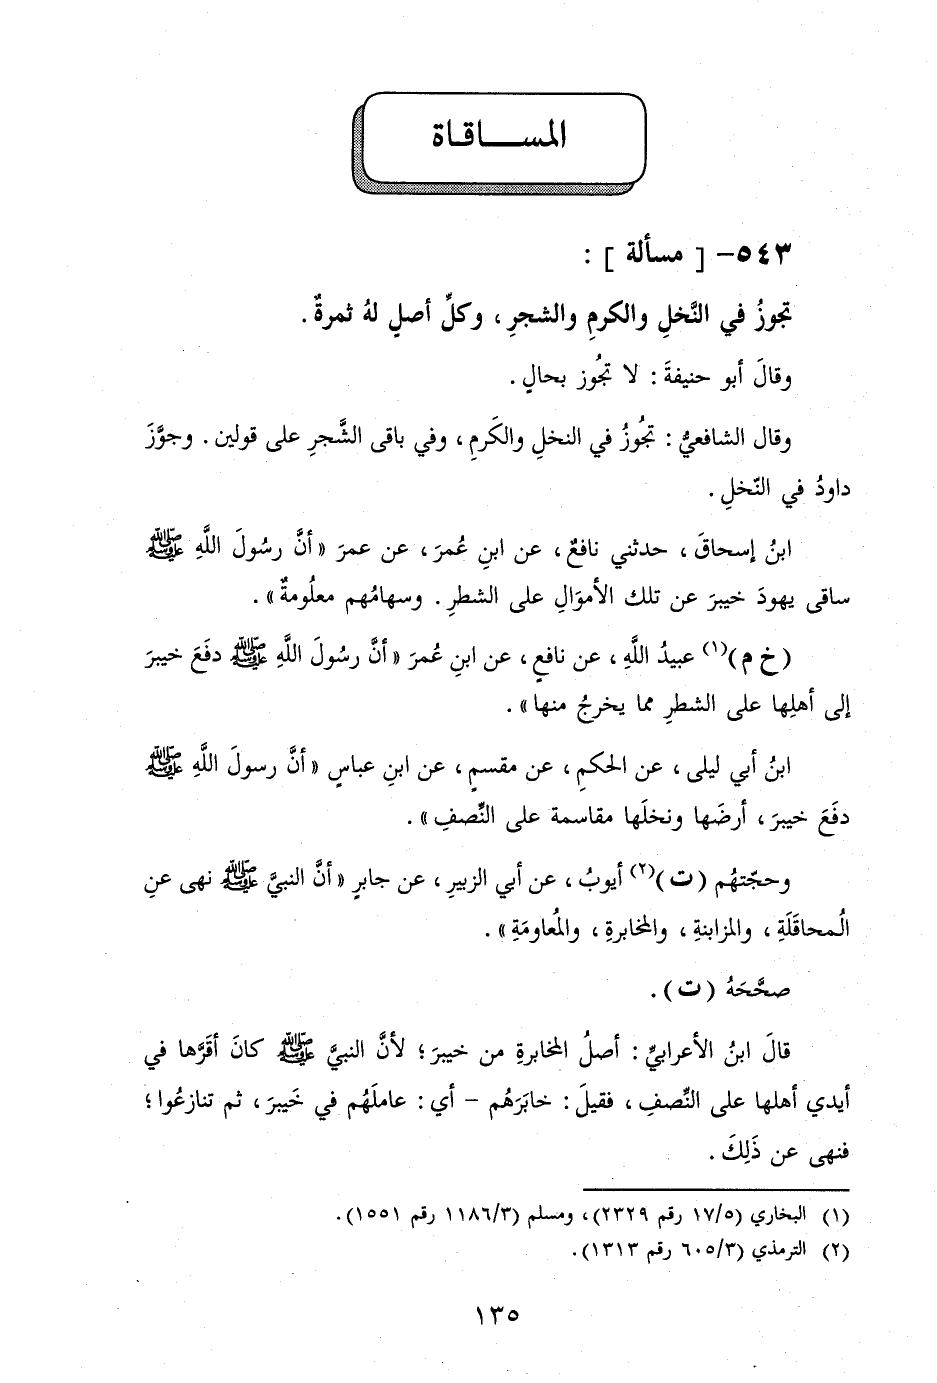 المساقاة
٥٤٣- [ مسألة ] :
تجوزُ في النَّخلِ والكرمِ والشجرِ ، وكلِّ أصلٍ لهُ ثمرةٌ .
وقالَ أبو حنيفةَ : لا تجُوز بحالٍ .
وقال الشافعيُّ : تجُوزُ في النخلِ والكَرمِ ، وفي باقى الشَّجرِ على قولين . وجوَّزَ
داودُ في النّخلِ .
ابنُ إسحاقَ ، حدثني نافعٌ ، عن ابنِ عُمرَ ، عن عمرَ « أنَّ رسُولَ اللَّهِ ﷺ
ساقى يهودَ خيبرَ عن تلك الأموَالِ على الشطرِ . وسهامُهم معلُومةٌ » .
( خ م )(١) عبيدُ اللَّهِ ، عن نافعٍ ، عن ابنِ عُمرَ « أنَّ رسُولَ اللَّهِ ﷺ دفَعَ خيبرَ
إلى أهلِها على الشطرِ مما يخرجُ منها » .
ابنُ أبي ليلى ، عن الحكمِ ، عن مقسمٍ ، عن ابنِ عباسٍ « أنَّ رسولَ اللَّهِ ﷺ
دفَعَ خيبرَ ، أرضَها ونخلَها مقاسمة على النِّصفِ » .
وحجّتهُم ( ت )(٢) أيوبُ ، عن أبي الزبيرِ ، عن جابرٍ « أنَّ النبيَّ ﷺ نهى عنِ
الُمحاقَلَةِ ، والمزابنةِ ، والمخابرةِ ، والمُعاومَةِ » .
صحَّحَهُ ( ت ) .
قالَ ابنُ الأعرابيِّ : أصلُ المخابرةِ من خيبرَ ؛ لأنَّ النبيَّ ﷺ كانَ أقرَّها في
أيدي أهلها على النِّصفِ ، فقيلَ : خابَرَهُم - أي : عاملَهُم في خَيبرَ ، ثم تنازعُوا ؛
فنهى عن ذَلِكَ .
(١) البخاري (١٧/٥ رقم ٢٣٢٩)، ومسلم (١١٨٦/٣ رقم ١٥٥١).
(٢) الترمذي (٦٠٥/٣ رقم ١٣١٣).
١٣٥